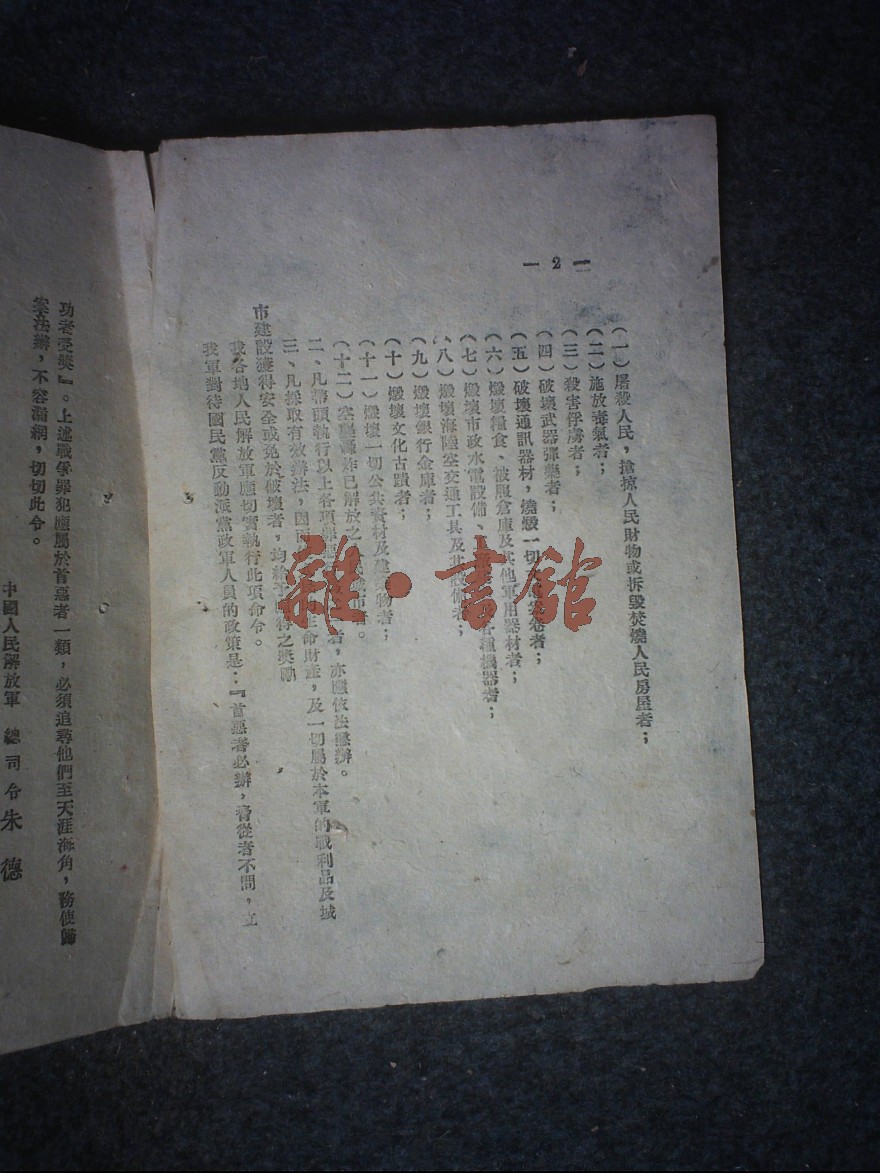 — 2 —
（一）屠殺人民，搶掠人民財物或拆毀焚燒人民房屋者；
（二）施放毒氣者；
（三）殺害俘虜者；
（四）破壞武器彈藥者；
（五）破壞通訊器材，燒燬一切文案卷者；
（六）燬壞糧食、被服倉庫及其他軍用器材者；
（七）燬壞市政水電設備、各種機器者；
（八）燬壞海陸空交通工具及其設備者；
（九）燬壞銀行金庫者；
（十）燬壞文化古蹟者；
（十一）燬壞一切公共資材及建築物者；
（十二）空襲轟炸已解放之人民城市者。
二、凡帶頭執行以上各項罪惡者，亦應依法懲辦。
三、凡採取有效辦法，因而生命財產，及一切屬於本軍的戰利品及城
市建設獲得安全或免於破壞者，均給予應得之獎勵
我各地人民解放軍應切實執行此項命令。
我軍對待國民黨反動派黨政軍人員的政策是：『首惡者必辦，脅從者不問，立
功者受獎』。上述戰爭罪犯應屬於首惡者一類，必須追尋他們至天涯海角，務使歸
案法辦，不容漏網，切切此令。
中國人民解放軍 總司令朱 德
雜·書館